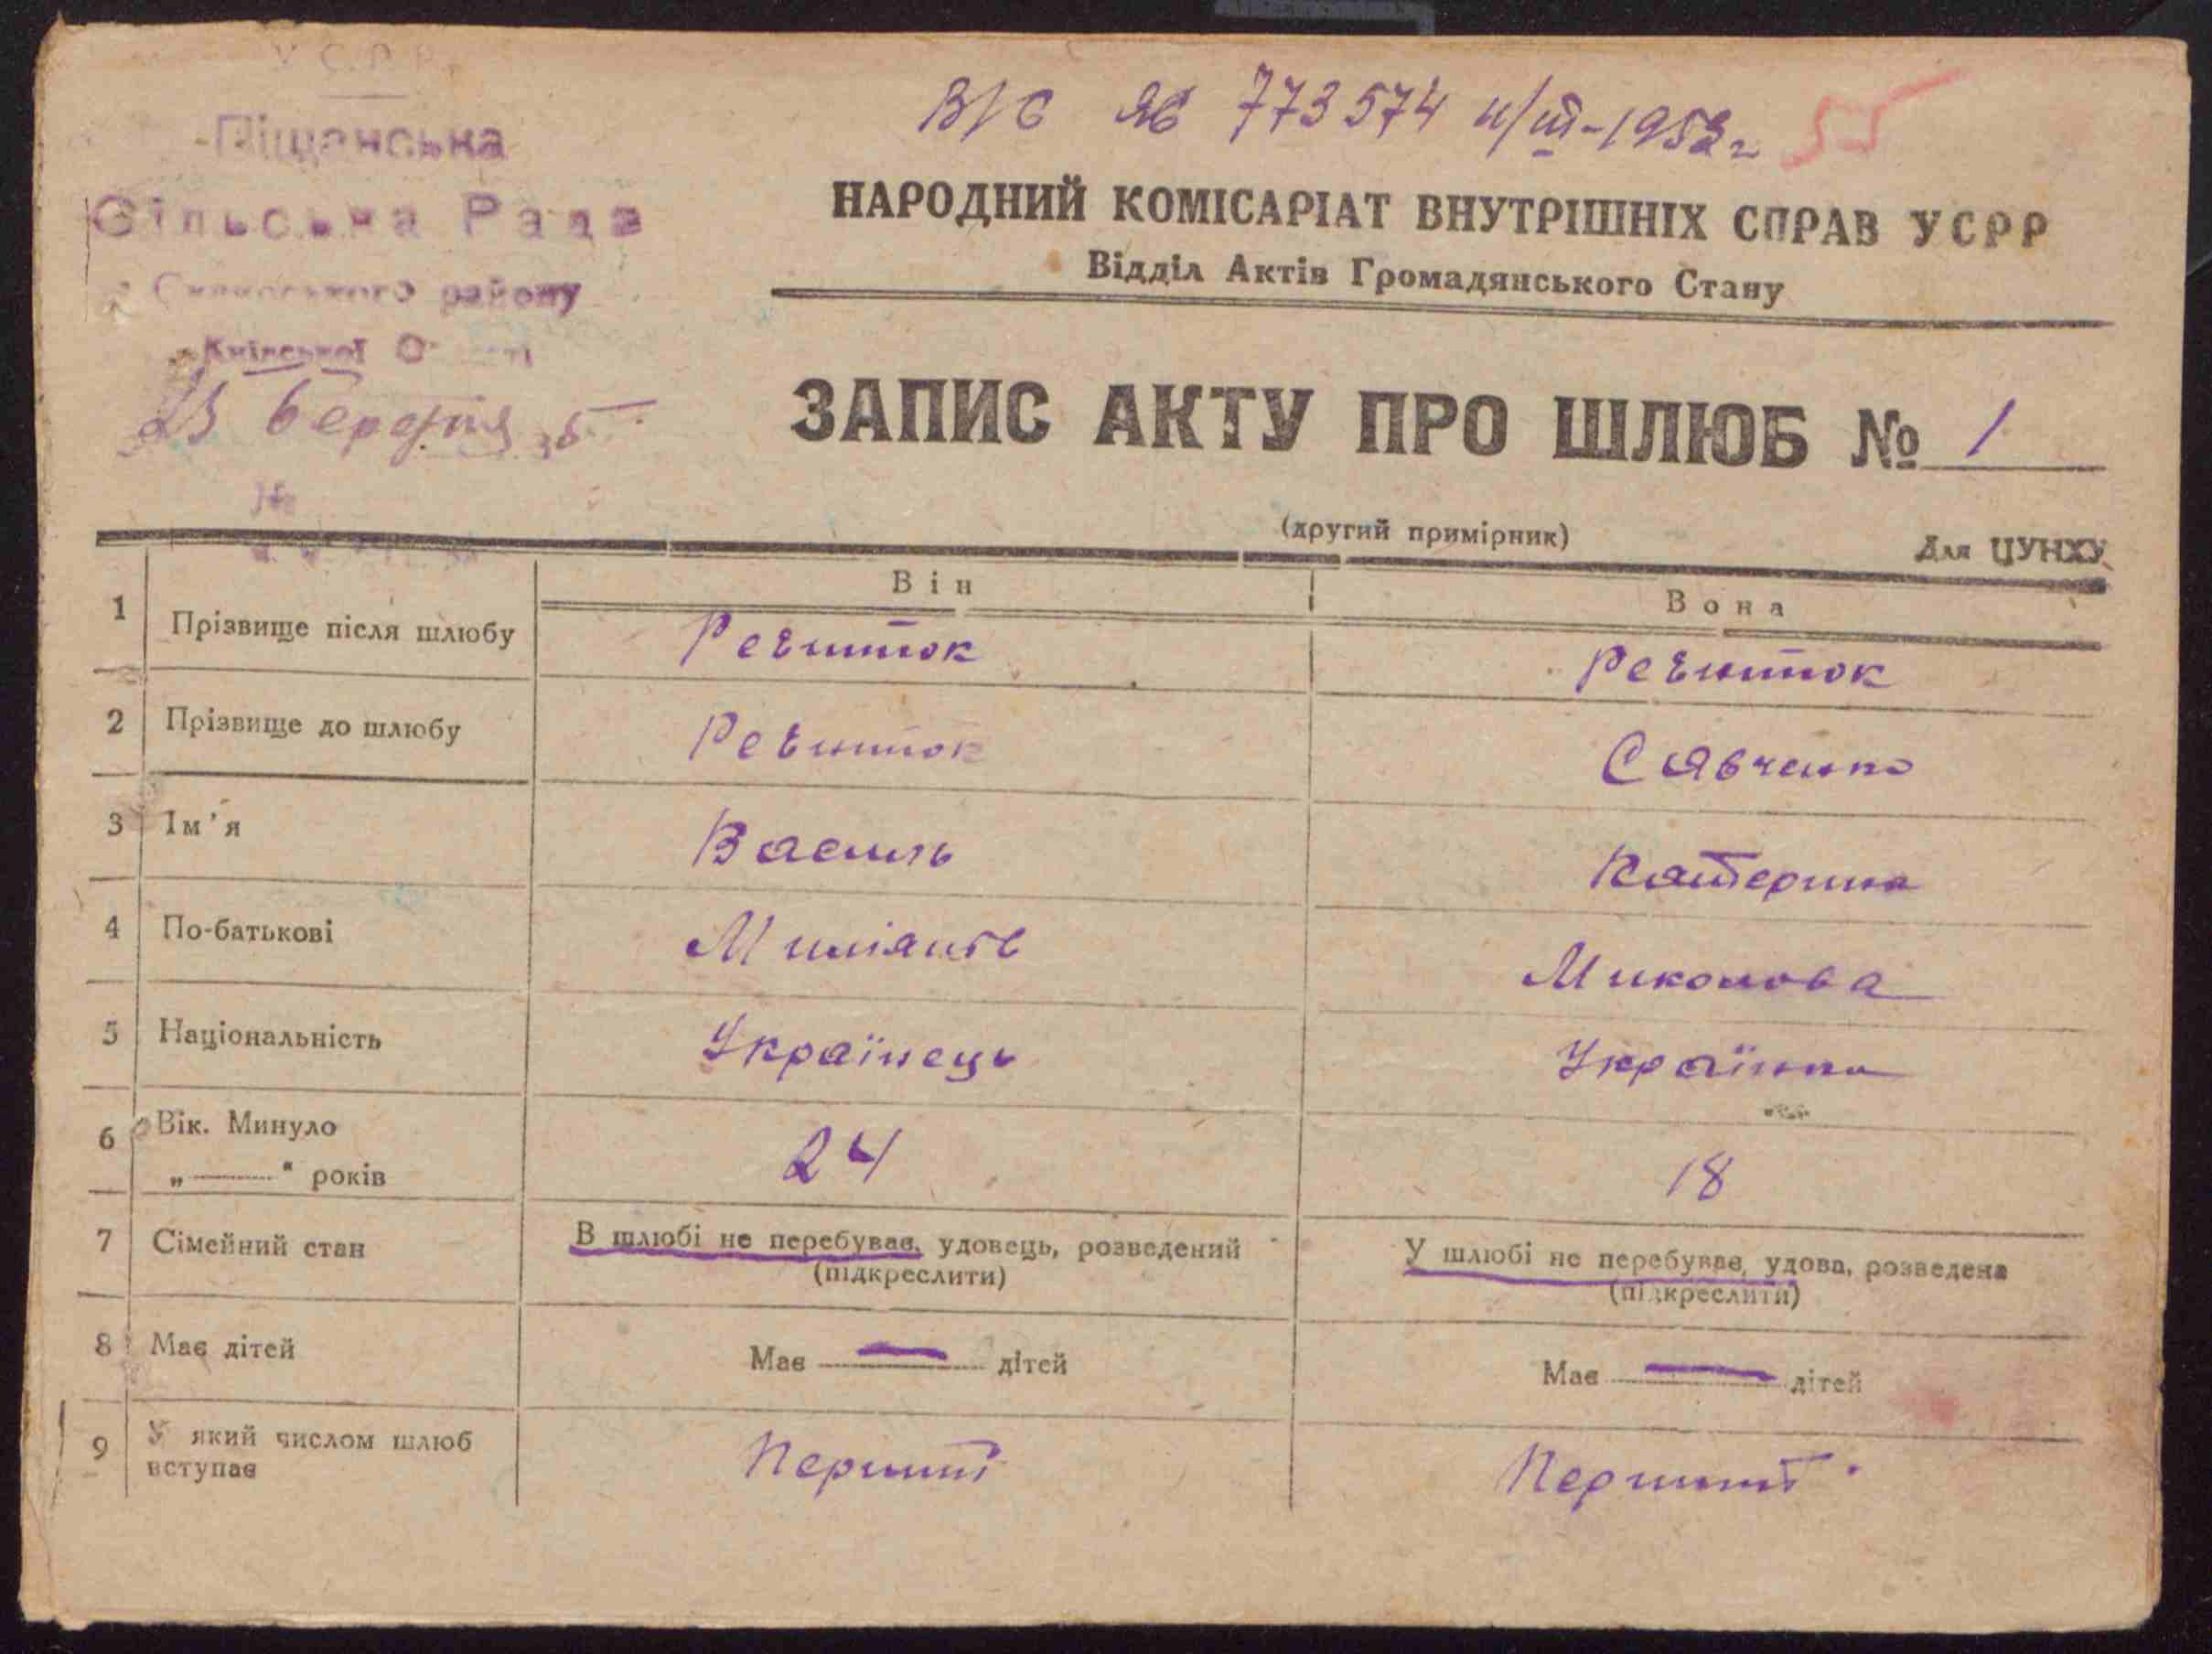 У.С.Р.Р.
Піщанська
Сільська Рада
району
Київської
25 березня 35
№
В/С ЯБ 773574 11/III-1953 г
55
НАРОДНИЙ КОМІСАРІАТ ВНУТРІШНІХ СПРАВ УСРР
Відділ Актів Громадянського Стану
ЗАПИС АКТУ ПРО ШЛЮБ № 1
(другий примірник)
Для ЦУНХУ
Він Вона
1 Прізвище після шлюбу Ревиток Ревиток
2 Прізвище до шлюбу Ревиток Савченко
3 Ім'я Василь Катерина
4 По-батькові Миколова
5 Національність Українець Українка
6 Вік. Минуло 24 18
„ “ років
7 Сімейний стан В шлюбі не перебував, удовець, розведений У шлюбі не перебував, удова, розведена
(підкреслити) (підкреслити)
8 Має дітей Має — дітей Має — дітей
9 У який числом шлюб Перший Перший
вступає